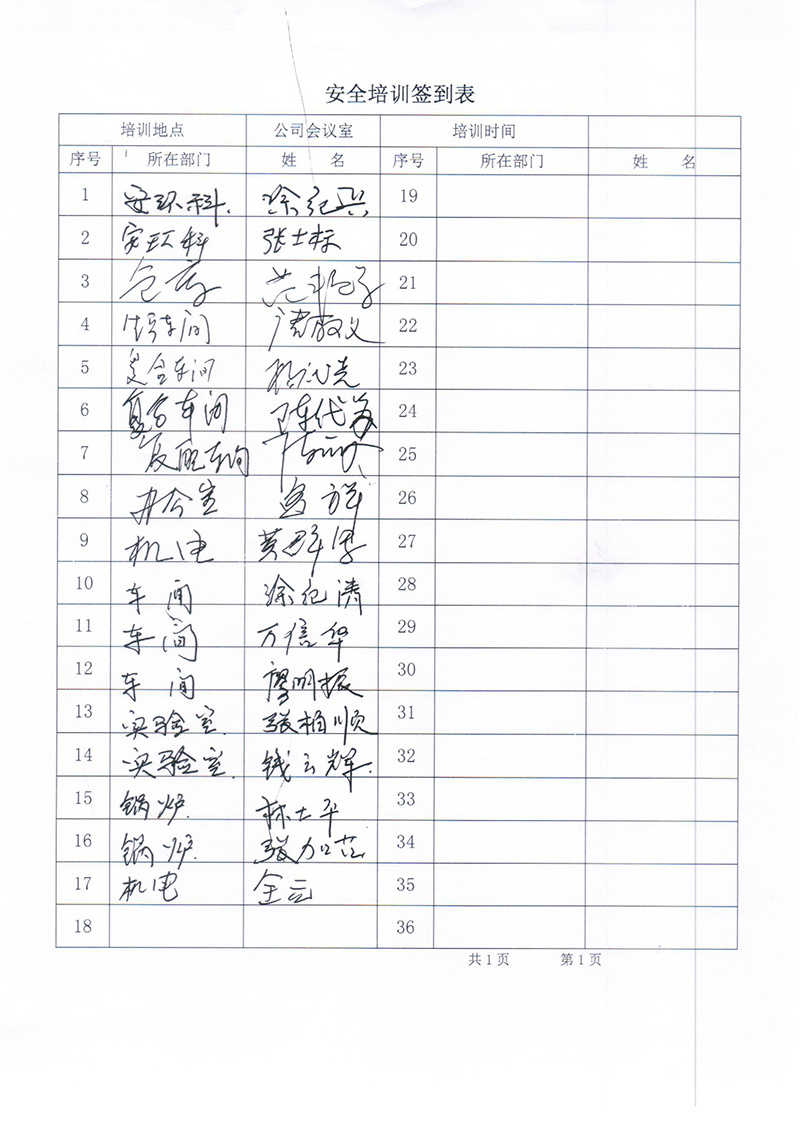 安全培训签到表
培训地点 公司会议室 培训时间
序号 所在部门 姓 名 序号 所在部门 姓 名
1 安环科. 徐纪兴 19
2 安环科 张士标 20
3 仓库 21
4 车间 22
5 复合车间 23
6 复合车间 24
7 车间 25
8 办公室 26
9 机电 27
10 车间 徐纪清 28
11 车间 万信华 29
12 车间 廖明振 30
13 实验室. 张柏顺 31
14 实验室. 钱云辉. 32
15 锅炉. 林士平 33
16 锅炉. 张加范 34
17 机电 全云 35
18 36
共1页 第1页